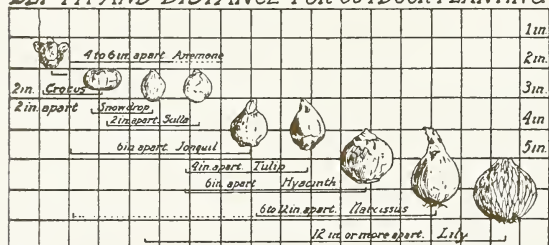 DEPTH AND DISTANCE FOR OUTDOOR PLANTING
1in.
4 to 6 in. apart Anemone
2in.
2in. Crocus
3in.
2in. apart
Snowdrop
2in. apart. Scilla
4in
6in apart Jonquil
5in.
4in. apart. Tulip
6in. apart Hyacinth
6 to 12 in. apart. Narcissus
12 in. or more apart. Lily